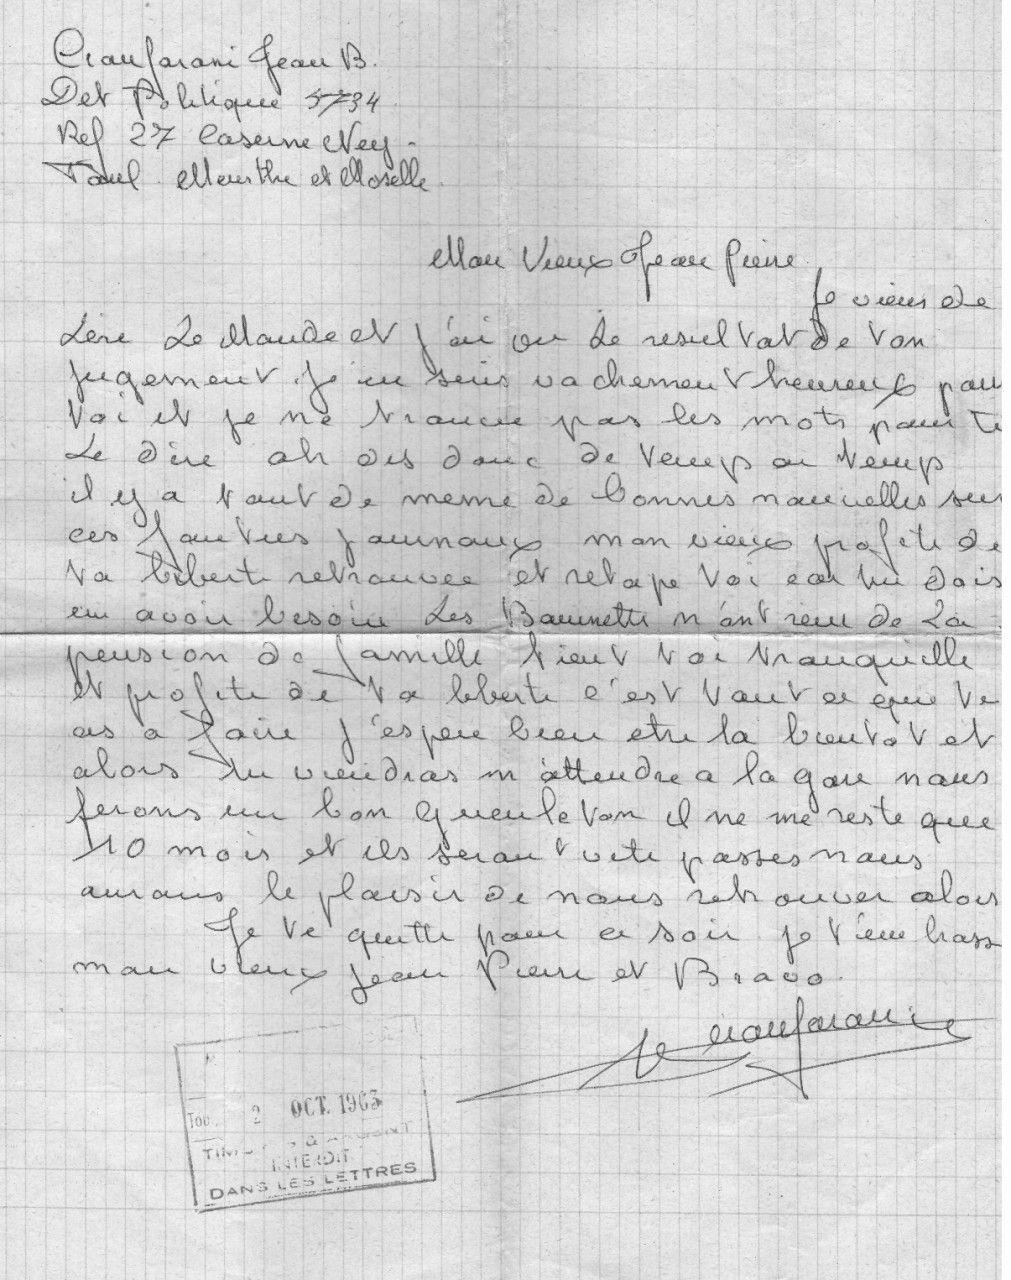 Cianfarani Jean B.
Det Politique 5734
Ref 27 Caserne Ney -
Toul Meurthe et Moselle
Mon Vieux Jean Pierre
Je viens de
Lire Le Monde et j'ai vu Le resultat de ton
jugement. Je en suis vachement heureux pour
toi et je ne trouve pas les mots pour te
Le dire ah dis donc de temp en temp
il y a tout de meme de bonnes nouvelles sur
ces foutus journaux mon vieux profite de
ta liberte retrouvee et retape toi car tu dois
en avoir besoin Les Baumette n'ont rien de La
pension de famille tient toi tranquille
et profite de ta liberte c'est tout ce que te
as a faire j'espere bien etre la bientot et
alors tu viendras m'attendre a la gare nous
ferons un bon gueuleton il ne me reste que
10 mois et ils seront vite passes nous
aurons le plaisir de nous retrouver alors
Je te quitte pour ce soir je t'embrass
mon vieux Jean Pierre et Bravo.
Cianfarani
2 OCT. 1963
TIMBRES & ARGENT
INTERDIT
DANS LES LETTRES